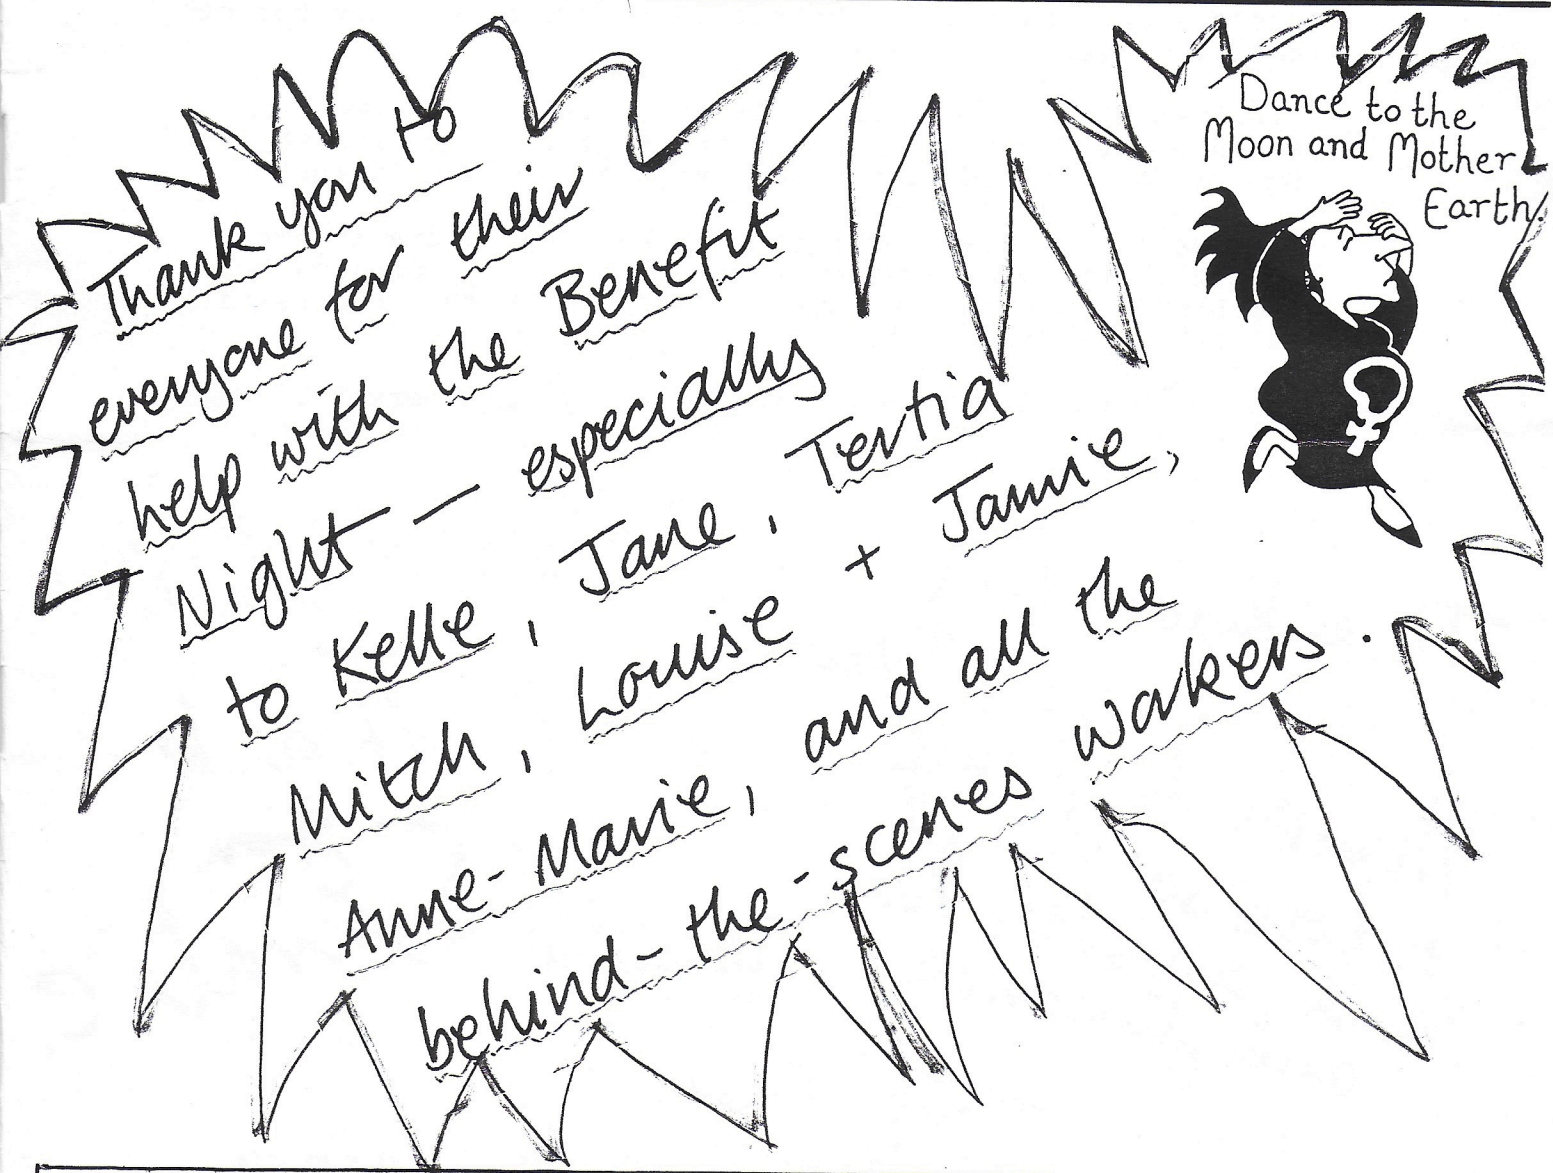 Thank you to
everyone for their
help with the Benefit
Night — especially
to Kelle, Jane, Tertia
Mitch, Louise + Jamie,
Anne-Marie, and all the
behind-the-scenes workers.
Dance to the
Moon and Mother
Earth.